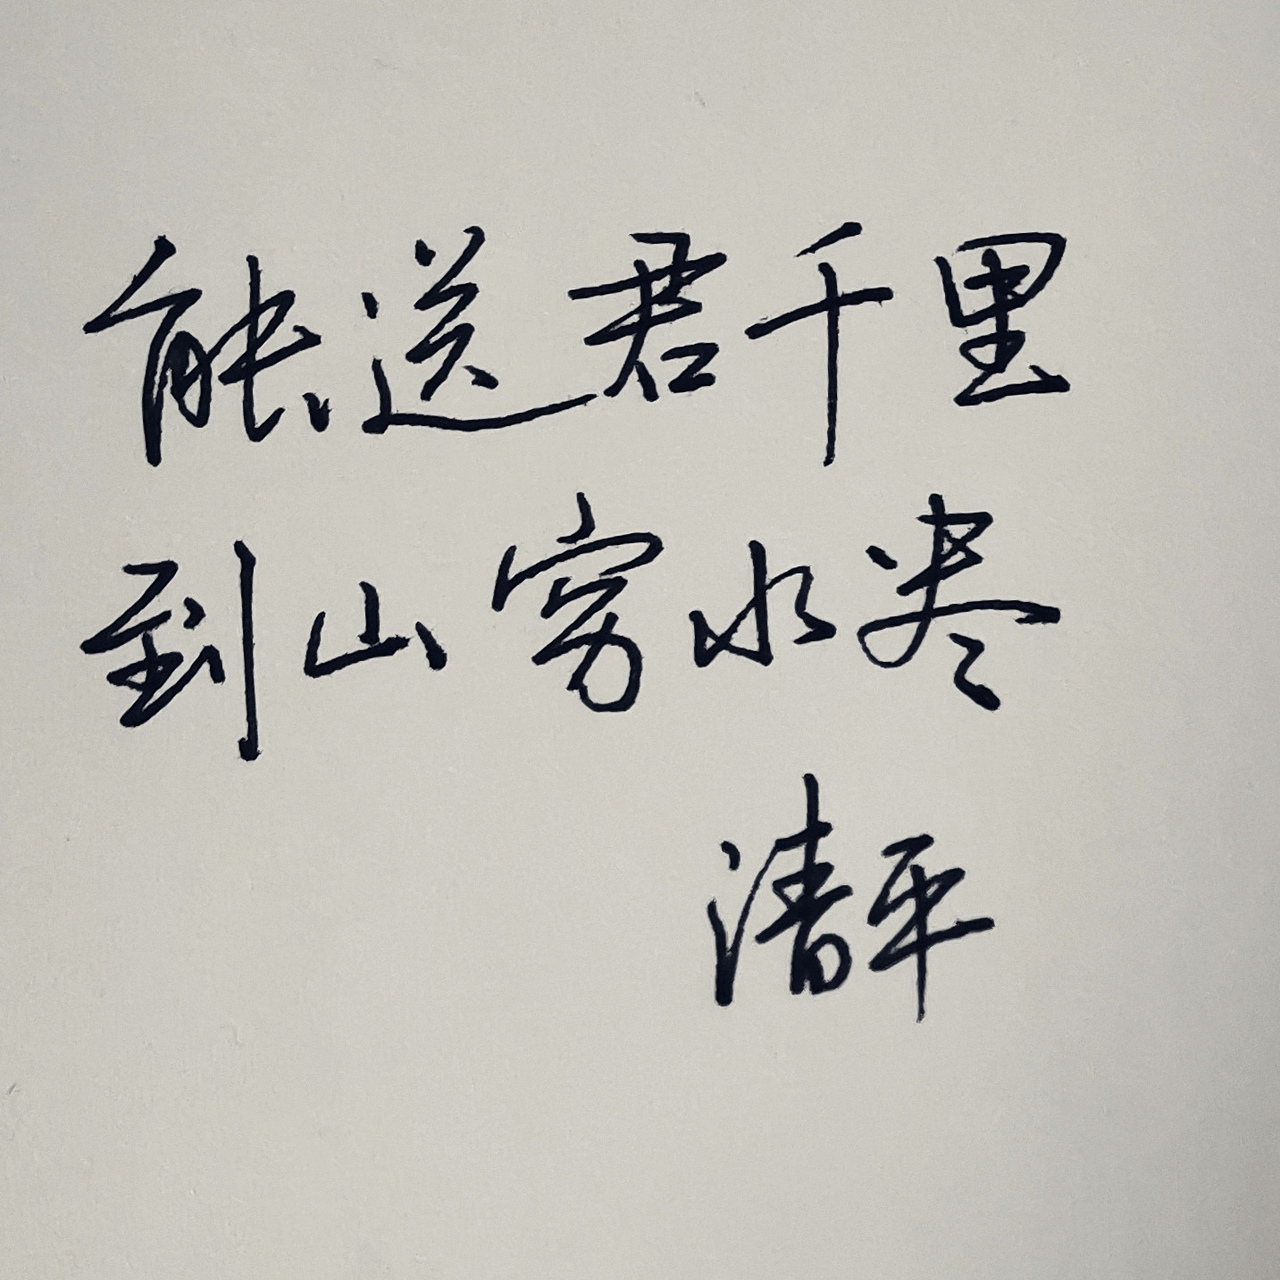 能送君千里
到山穷水尽
清平